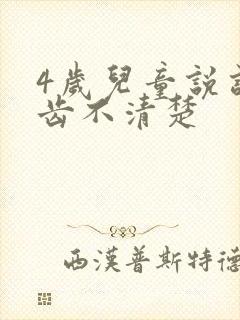 4歲兒童説
齒不清楚
西漢普斯特德